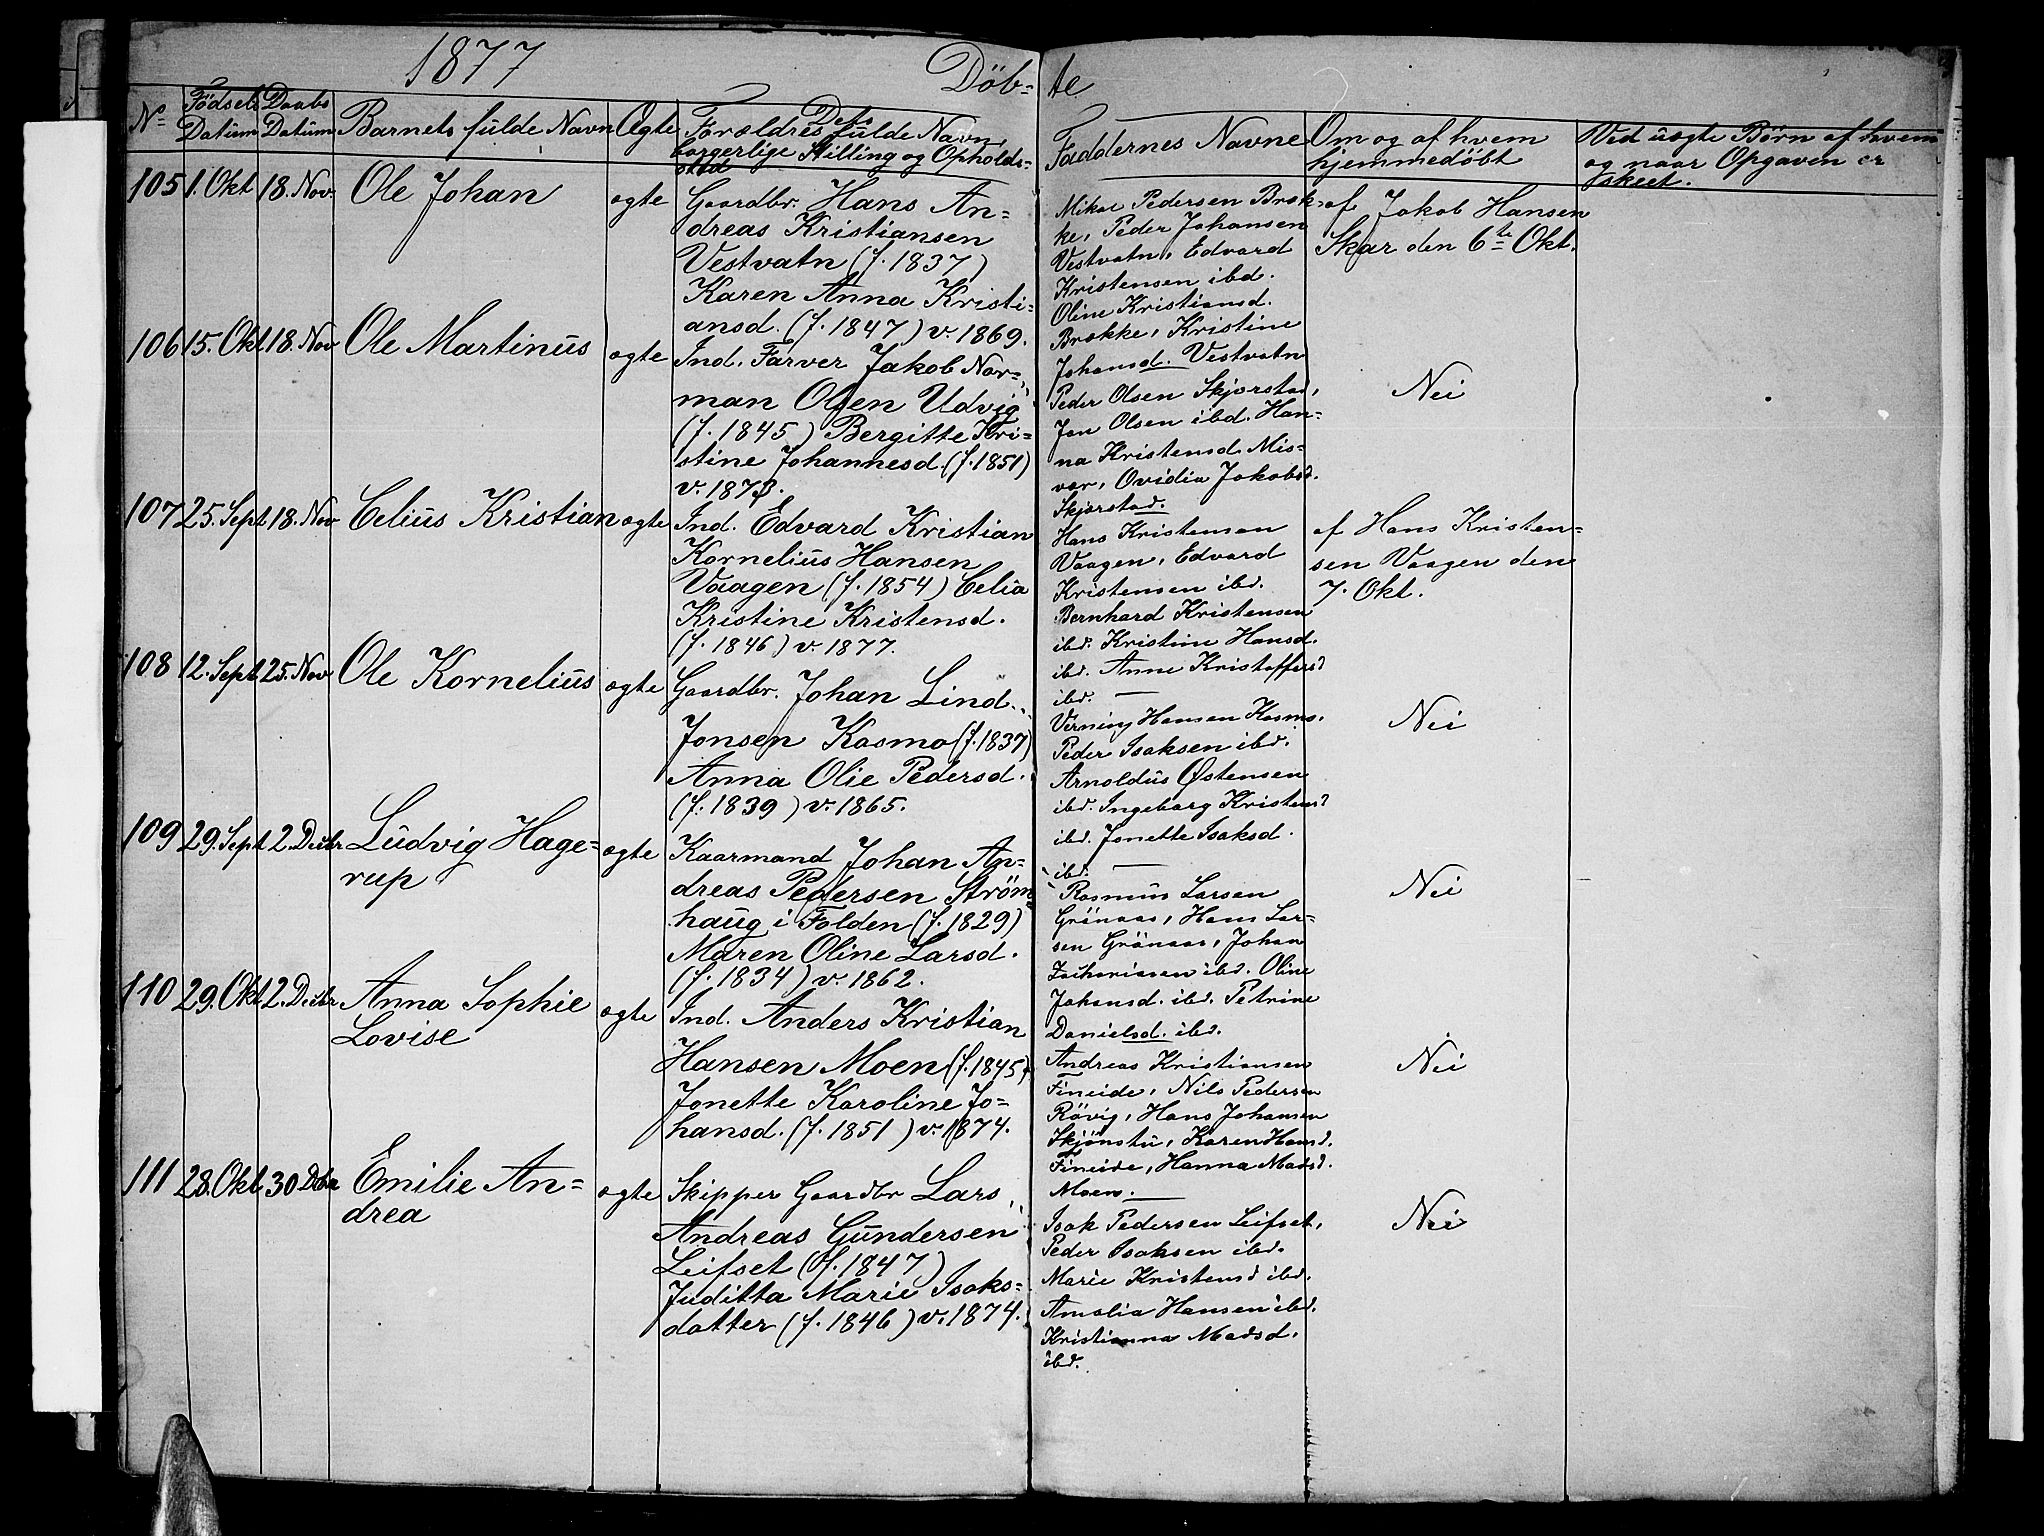 1877
Döb=
te
No
Födsels
Datum
Daabs
Datum
Barnets fulde Navn
Ægte
Dets
Forældres fulde Navn,
borgerlige Stilling og Opholds=
sted
Faddernes Navne
Om og af hvem
hjemmedöbt
Ved uægte Börn af hvem
og naar Opgaven er
skeet.
105 1. Okt 18. Nov. Ole Johan ægte
Gaardbr. Hans An=
dreas Kristiansen
Vestvatn (f. 1837)
Karen Anna Kristi=
ansd. (f. 1847) v. 1869.
Mikal Pedersen Bræk=
ke, Peder Johansen
Vestvatn, Edvard
Kristensen ibd.
Oline Kristiansd.
Brække, Kristine
Johansd. Vestvatn
af Jakob Hansen
Skar den 6te Okt.
106 15. Okt 18. Nov Ole Martinus ægte
Ind. Farver Jakob Nor=
man Olsen Udvig
(f. 1845) Bergitte Kri=
stine Johannesd. (f. 1851)
v. 1873.
Peder Olsen Skjorstad,
Jon Olsen ibd. Han=
na Kristensd. Mis=
vær, Ovidia Jakobsd.
Skjorstad.
Nei
107 25. Sept 18. Nov Celius Kristian ægte
Ind. Edvard Kristian
Kornelius Hansen
Vaagen (f. 1854) Celia
Kristine Kristensd.
(f. 1846) v. 1877.
Hans Kristensen
Vaagen, Edvard
Kristensen ibd.
Bernhard Kristensen
ibd. Kristine Hansd.
ibd. Anne Kristoffersd
ibd.
af Hans Kristen=
sen Vaagen den
7. Okt.
108 12. Sept 25. Nov Ole Kornelius ægte
Gaardbr. Johan Lind
Jonsen Kosmo (f. 1837)
Anna Olie Pedersd.
(f. 1839) v. 1865.
Verning Hansen Kosmo,
Peder Isaksen ibd.
Arnoldus Østensen
ibd. Ingeborg Kristensd
ibd. Jonette Isaksd.
ibd.
Nei
109 29. Sept 2. Decbr Ludvig Hage=
rup
ægte
Kaarmand Johan An=
dreas Pedersen Ström=
haug i Folden (f. 1829)
Maren Oline Larsd.
(f. 1834) v. 1862.
Rasmus Larsen
Grönaas, Hans Lar=
sen Grönaas, Johan
Zachariasen ibd. Oline
Johansd. ibd. Petrine
Danielsd. ibd.
Nei
110 29. Okt 2. Decbr Anna Sophie
Lovise
ægte
Ind. Anders Kristian
Hansen Moen (f. 1845)
Jonette Karoline Jo=
hansd. (f. 1851) v. 1874.
Andreas Kristiansen
Fineide, Nils Pedersen
Rövig, Hans Johansen
Skjönstu, Karen Hansd.
Fineide, Hanna Madsd.
Moen.
Nei
111 28. Okt 30 Emilie An=
drea
ægte
Skipper Gaardbr Lars
Andreas Gundersen
Leifset (f. 1847)
Juditta Marie Isaks=
datter (f. 1846) v. 1874.
Isak Pedersen Leifset,
Peder Isaksen ibd.
Marie Kristensd ibd.
Amalia Hansen ibd.
Kristianna Madsd.
ibd.
Nei